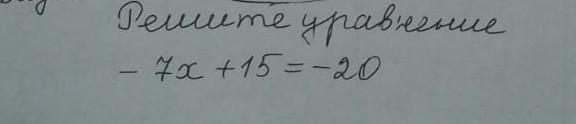 Решите уравнение
- 7x + 15 = -20